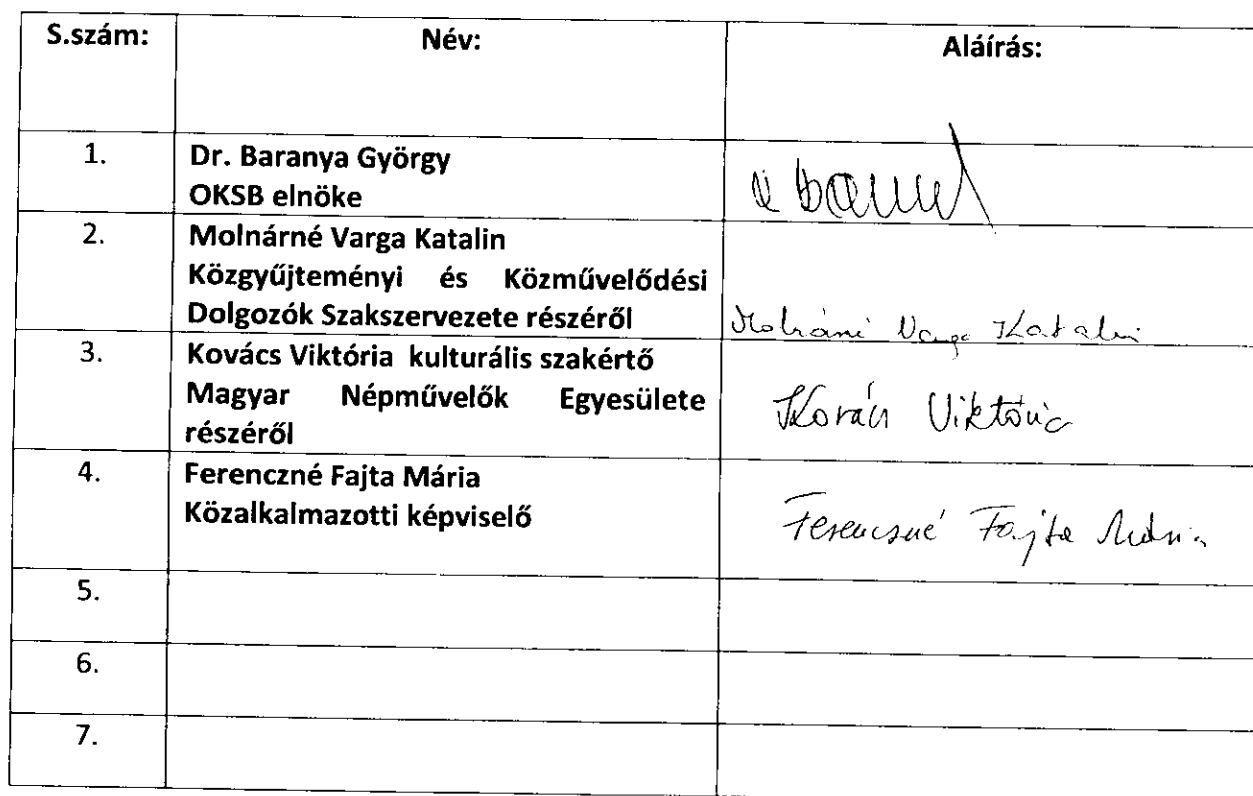 S.szám: Név: Aláírás:
1. Dr. Baranya György
OKSB elnöke
2. Molnárné Varga Katalin
Közgyűjteményi és Közművelődési
Dolgozók Szakszervezete részéről Molnárné Varga Katalin
3. Kovács Viktória kulturális szakértő
Magyar Népművelők Egyesülete Kovács Viktória
részéről
4. Ferenczné Fajta Mária
Közalkalmazotti képviselő Ferencsné Fajta Mária
5.
6.
7.